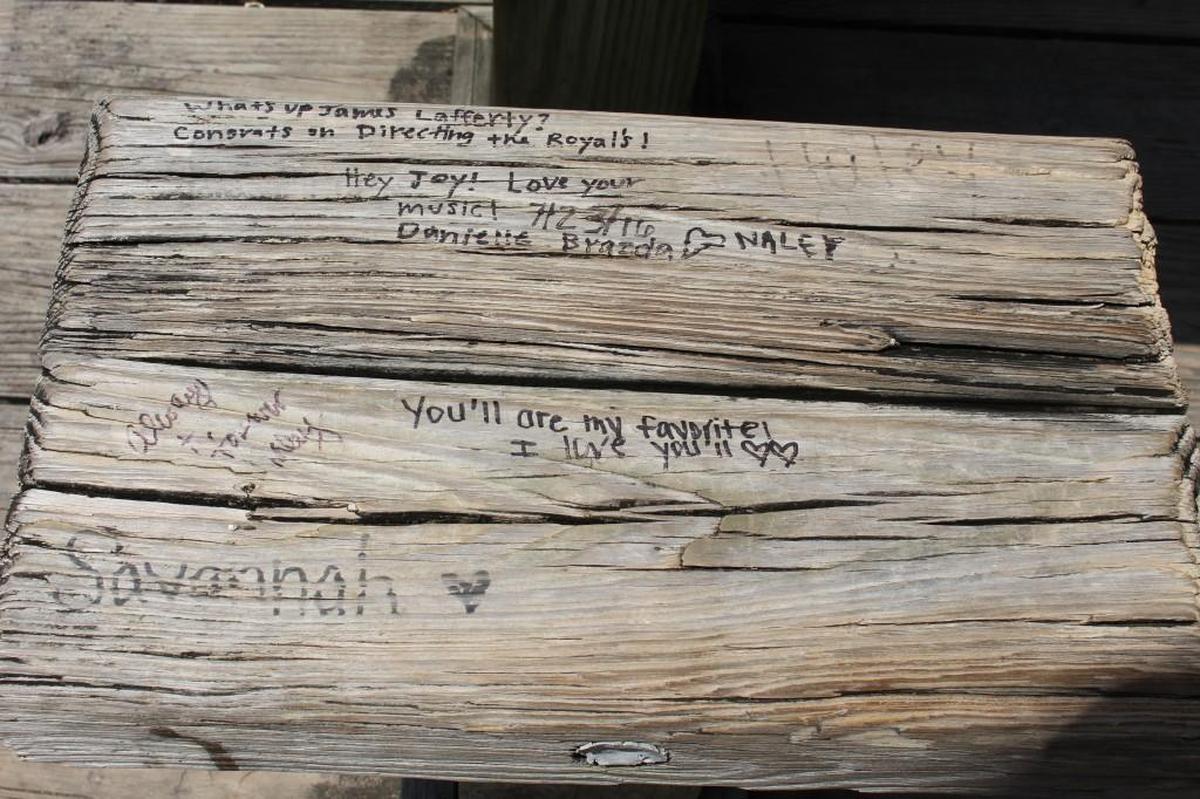 Whats up James Lafferty?
Congrats on Directing the Royal's!
Hey Joy! Love your
music! 7/23/16
Danielle Brazda NALEY
You'll are my favorite!
I love you'll
Always
Savannah